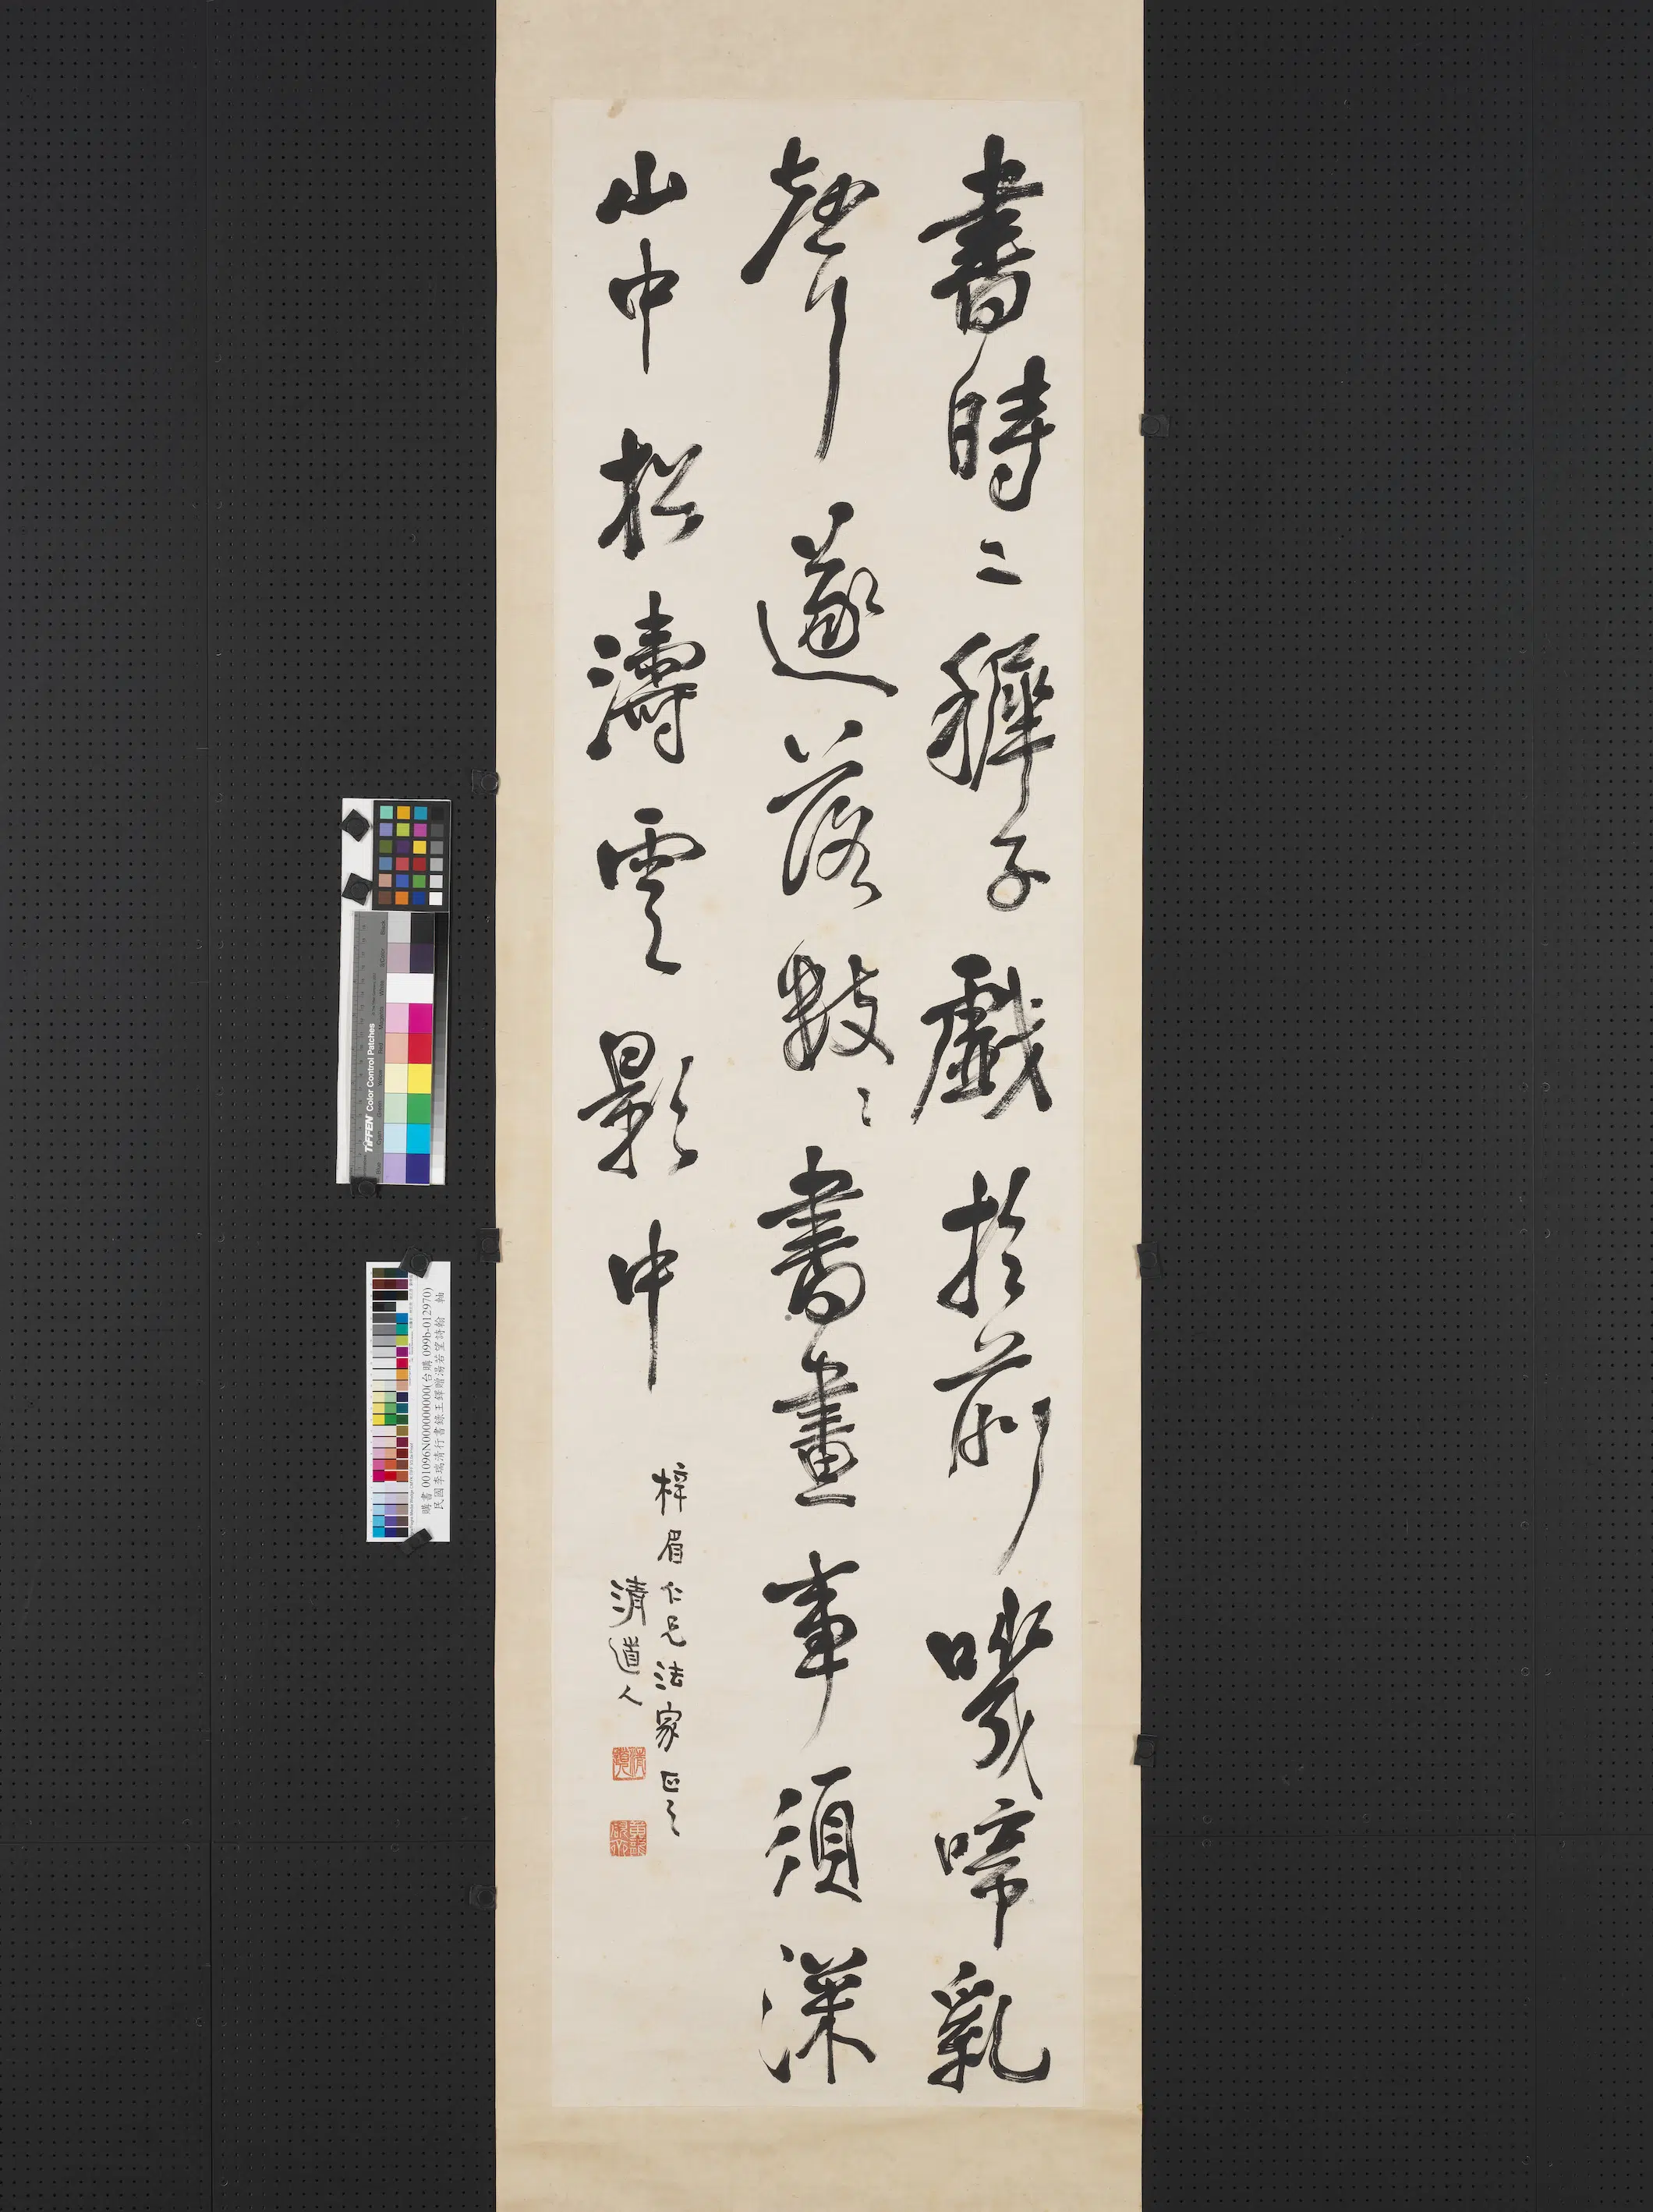 書時二穉子戲於前嘰啼亂
聲遂落數〻書畫事須深
山中松濤雲影中
梓眉仁兄法家正之
清道人
購書 001096N000000000(台購 099b-012970)
民國李瑞清行書錄王鐸贈湯若望詩翰 軸
TIFFEN Color Control Patches